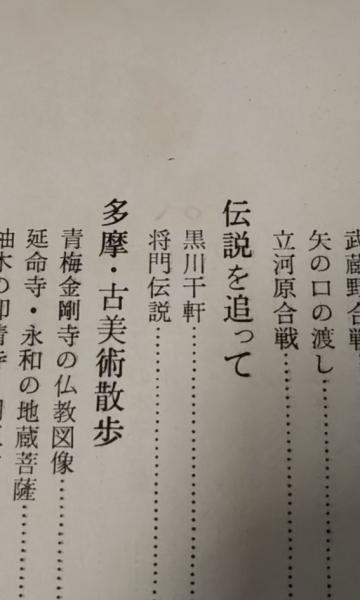 武蔵野合戦
矢の口の渡し
立河原合戦
伝説を追って
黒川千軒
将門伝説
多摩・古美術散歩
青梅金剛寺の仏教図像
延命寺・永和の地蔵菩薩
柚木の